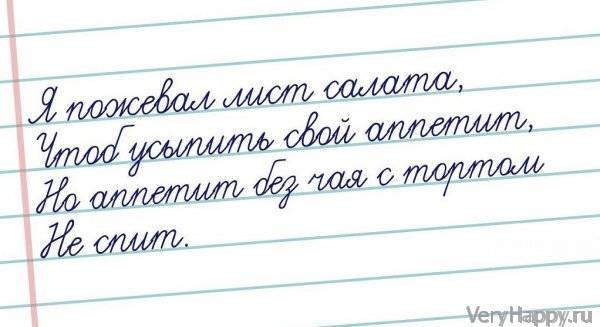 Я пожевал лист салата,
Чтоб усыпить свой аппетит,
Но аппетит без чая с тортом
Не спит.
VeryHappy.ru